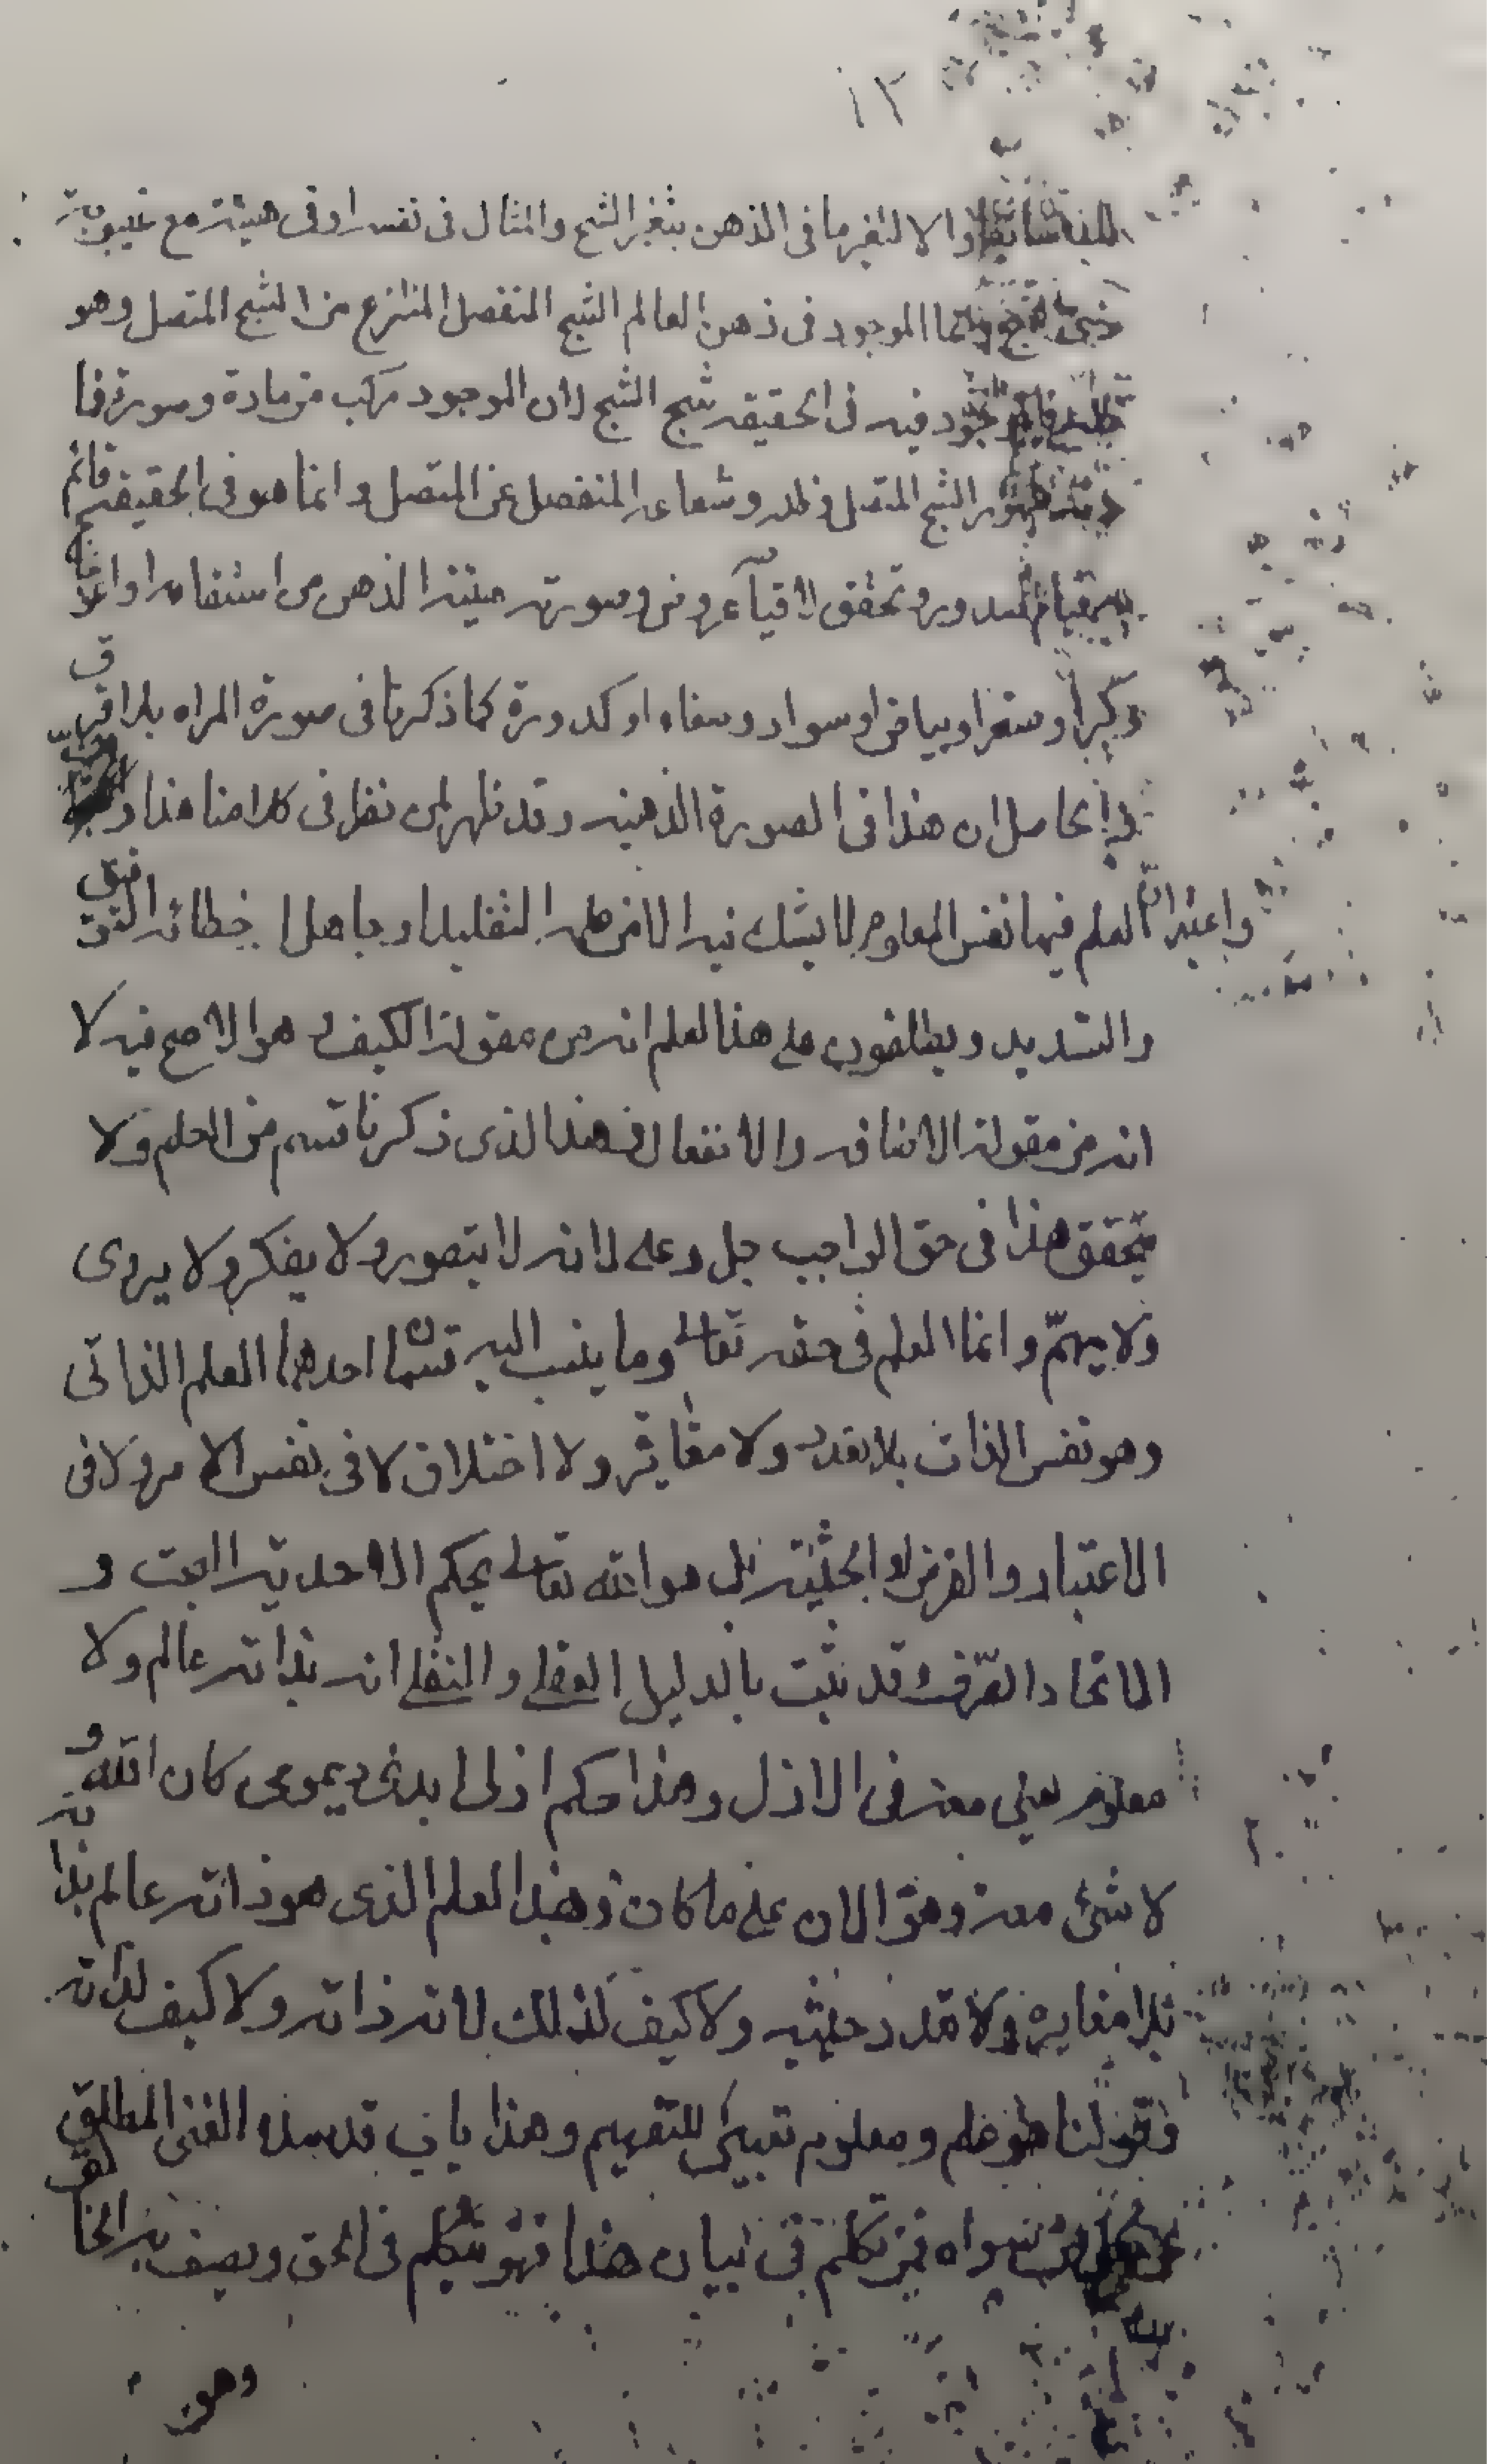 ١٢
والا لتغير ما فى الذهن بتغير الشبح والمثال فى نفسه او فى هيئته مع غيبوبته
الموجود فى ذهن العالم الشبح المنفصل المنتزع من الشبح المتصل وهو
فيه فى الحقيقه شبح الشبح لان الموجود مركب من مادة وصورة فا
الشبح المتصل وظله وشعاعه المنفصل عن المتصل وانما هو فى الحقيقه قائم
صدور وتحقق لا قيام عروض وصورته هيئة الذهن من استقامه او اعو
وكبر او صغر او بياض او سواد وصفاء او كدورة كما ذكرنا فى صورة المراه بلا فرق
والحاصل ان هذا فى الصورة الذهنيه وقد ظهر لمن نظر فى كلامنا هذا
واعتبر انّ العلم فيها نفس المعلوم لا يشك فيه الا من التقليد او جاهل اخطائه التوفيق
والتسديد ويطلقون على هذا العلم انه من مقولة الكيف وهو الاصح فيه لا
انه من مقولة الاضافه والانفعال فهذا الذى ذكرنا قسم من العلم ولا
يتحقق هذا فى حق الواجب جل وعلى لانه لا يتصور ولا يفكر ولا يروى
ولا يهمّ وانما العلم فى حقه تعالى وما ينسب اليه قسمان احدهما العلم الذاتى
وهو نفس الذات بلا تعدد ولا مغايره ولا اختلاف لا فى نفس الامر ولا فى
الاعتبار والفرض والحيثيه بل هو الله تعالى بحكم الاحديه البحت و
الاتحاد الصّرف وقد ثبت بالدليل العقلى والنقلى انه بذاته عالم ولا
معلوم يعنى معه فى الازل وهذا حكم ازلى ابدى ديمومى كان الله و
لا شئ معه وهو الان على ما كان وهذا العلم الذى هو ذاته عالم بذاته
بلا مغايره ولا تعدد حيثيه ولا كيف لذلك لانه ذاته ولا كيف لذاته
وقولنا هو علم ومعلوم تعبير للتفهيم وهذا باب قد سده الغنى المطلق
سواه فمن تكلم فى بيان هذا فهو يتكلم فى الحق ويصف به الخالق
وهو